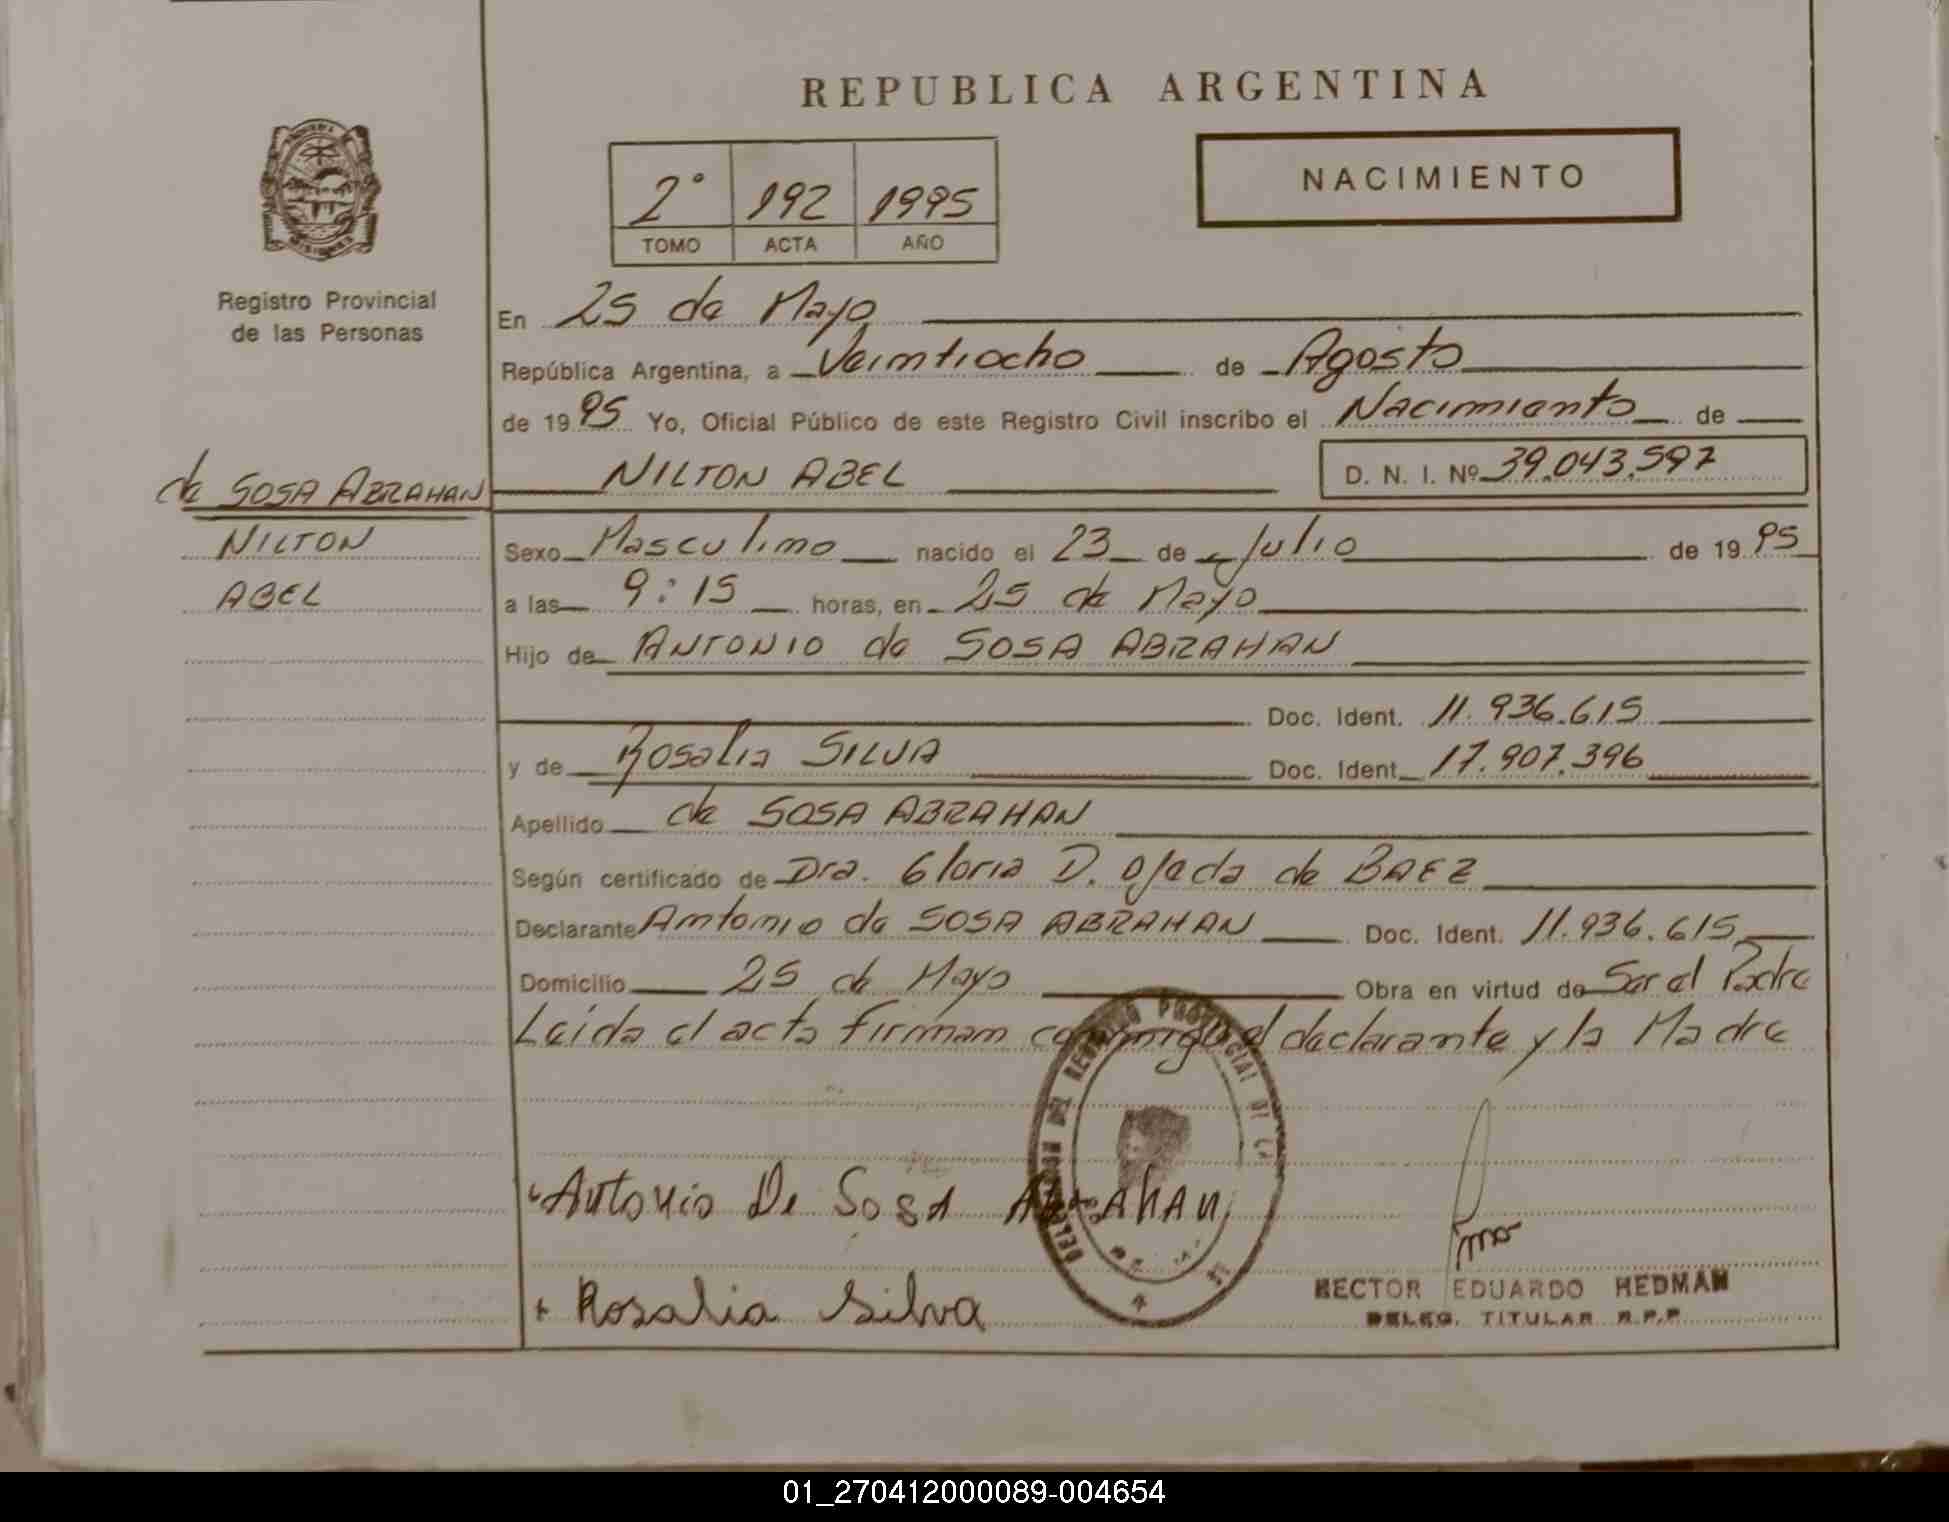 REPUBLICA ARGENTINA
NACIMIENTO
2° 192 1995
TOMO ACTA AÑO
Registro Provincial
de las Personas
En 25 de Mayo
República Argentina, a Veintiocho de Agosto
de 1995 Yo, Oficial Público de este Registro Civil inscribo el Nacimiento de
de SOSA ABRAHAN NILTON ABEL D. N. I. Nº 39.043.597
NILTON
ABEL
Sexo Masculino nacido el 23 de Julio de 1995
a las 9:15 horas, en 25 de Mayo
Hijo de ANTONIO de SOSA ABRAHAN
Doc. Ident. 11.936.615
y de Rosalia SILVA Doc. Ident. 17.907.396
Apellido de SOSA ABRAHAN
Según certificado de Dra. Gloria D. Ojeda de BAEZ
Declarante Antonio de SOSA ABRAHAN Doc. Ident. 11.936.615
Domicilio 25 de Mayo Obra en virtud de Ser el Padre
Leida el acta firman conmigo el declarante y la Madre
DELEGACION DEL REGISTRO PROVINCIAL DE LA
Antonio De Sosa Abrahan
+ Rosalia Silva
HECTOR EDUARDO HEDMAN
DELEG. TITULAR R.P.P.
01_270412000089-004654